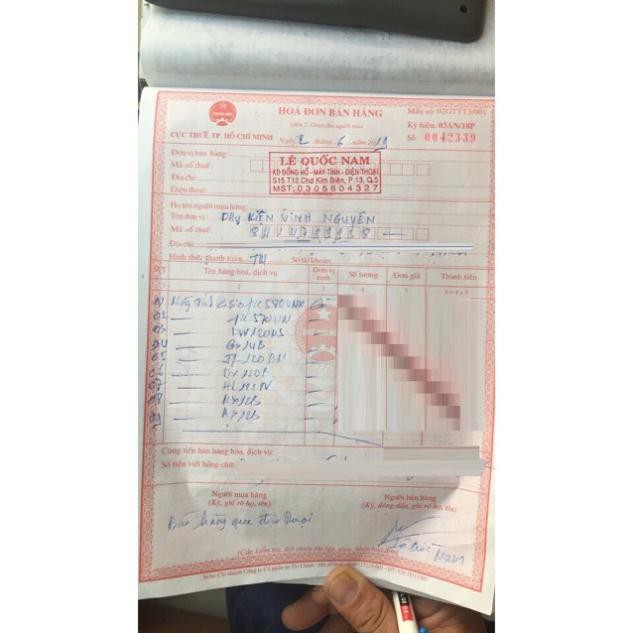 HOÁ ĐƠN BÁN HÀNG
Mẫu số: 02GTTT3/001
Liên 2: Giao cho người mua
Ký hiệu: 03AN/18P
CỤC THUẾ TP. HỒ CHÍ MINH
Ngày 2 tháng 6 năm 2019
Số: 0042339
Đơn vị bán hàng:
Mã số thuế:
Địa chỉ:
Điện thoại:
LÊ QUỐC NAM
KD ĐỒNG HỒ - MÁY TÍNH - ĐIỆN THOẠI
S15.T12 Chợ Kim Biên, P.13, Q.5
MST: 0305604327
Họ tên người mua hàng:
Tên đơn vị: KIÊN VĨNH NGUYÊN
Mã số thuế:
Địa chỉ
Hình thức thanh toán: TM Số tài khoản
STT
Tên hàng hoá, dịch vụ
Đơn vị tính
Số lượng
Đơn giá
Thành tiền
01 Máy tính Casio FX 580VNX
02 570VN
03 DW120MS
04 GX14B
05 JJ-120BN
06 DX120B
07 HL122V
08 MX12B
09 AX12B
Cộng tiền bán hàng hóa, dịch vụ:
Số tiền viết bằng chữ:
Người mua hàng
(Ký, ghi rõ họ, tên)
Người bán hàng
(Ký, đóng dấu, ghi rõ họ, tên)
Bán hàng qua điện thoại
Lê Quốc Nam
(Cần kiểm tra, đối chiếu khi lập, giao, nhận hóa đơn)